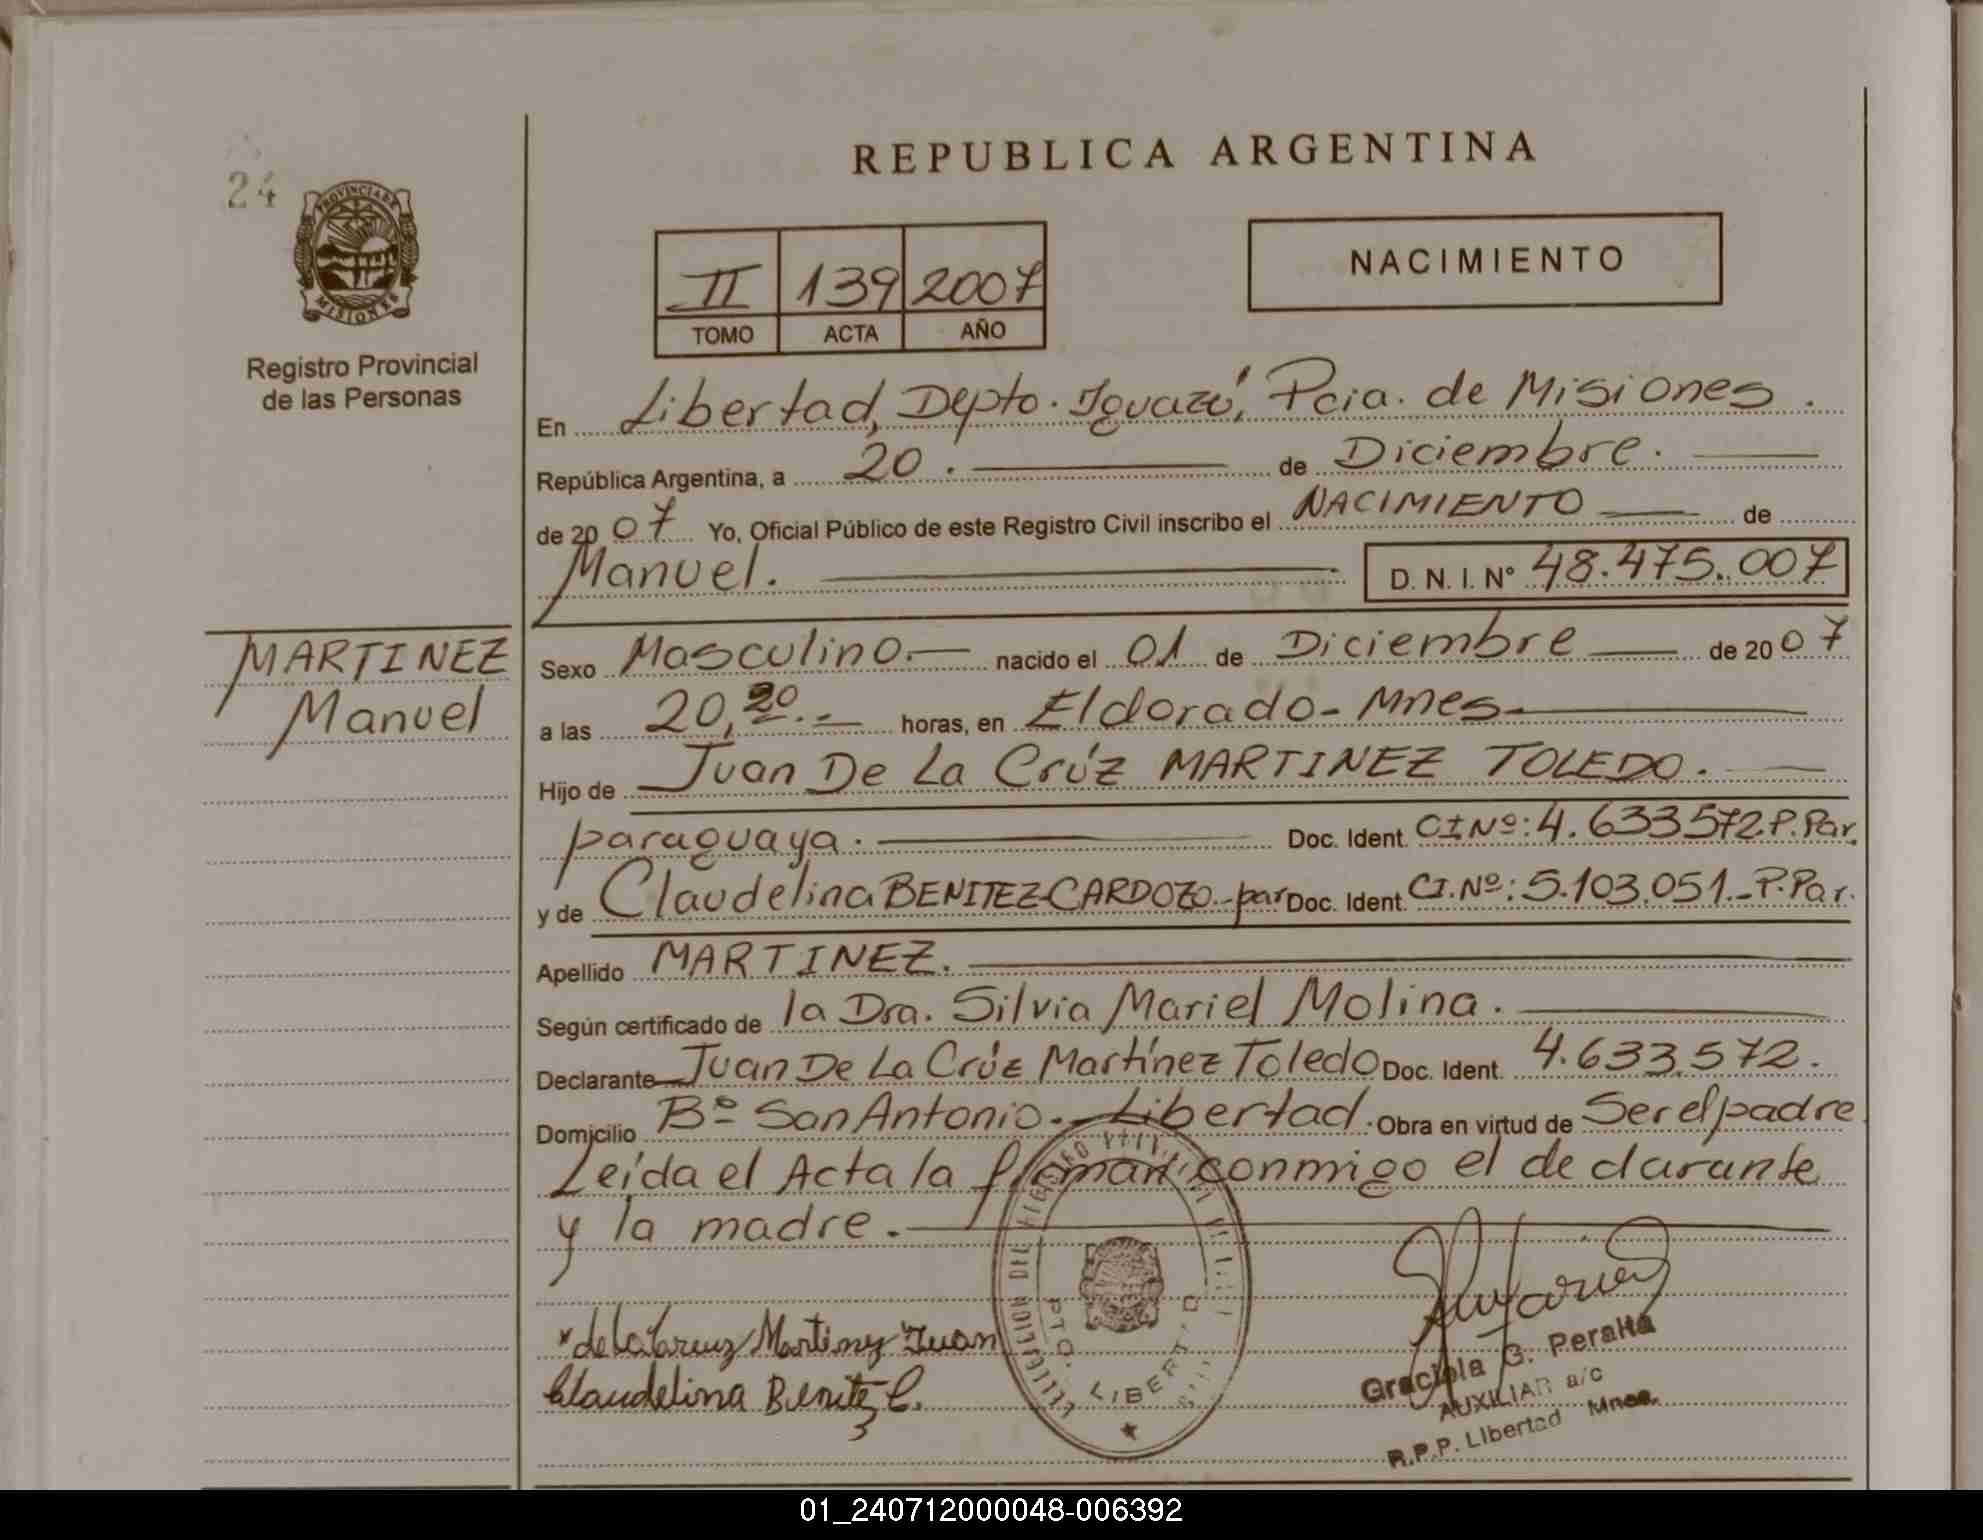 24
PROVINCIA DE
MISIONES
Registro Provincial
de las Personas
MARTINEZ
Manuel
REPUBLICA ARGENTINA
II 139 2007
TOMO ACTA AÑO
NACIMIENTO
En Libertad, Depto. Iguazú, Pcia. de Misiones.
República Argentina, a 20. de Diciembre.
de 2007 Yo, Oficial Público de este Registro Civil inscribo el NACIMIENTO de
Manuel. D. N. I. Nº 48.475.007
Sexo Masculino.- nacido el 01 de Diciembre de 2007
a las 20,20.- horas, en Eldorado- Mnes-
Hijo de Juan De La Crúz MARTINEZ TOLEDO.
paraguaya. Doc. Ident. CI Nº: 4.633572.P.Par.
y de Claudelina BENITEZ CARDOZO.-par Doc. Ident. CI.Nº: 5.103.051.-P.Par.
Apellido MARTINEZ.
Según certificado de la Dra. Silvia Mariel Molina.
Declarante Juan De La Crúz Martínez Toledo Doc. Ident. 4.633.572.
Domicilio Bº San Antonio.- Libertad. Obra en virtud de Ser el padre
Leída el Acta la firman conmigo el declarante
y la madre.-
de la Cruz Martinez Juan
Claudelina Benitez C.
PTO. LIBERTAD
Graciela G. Peralta
AUXILIAR a/c
R.P.P. Libertad Mnes.
01_240712000048-006392